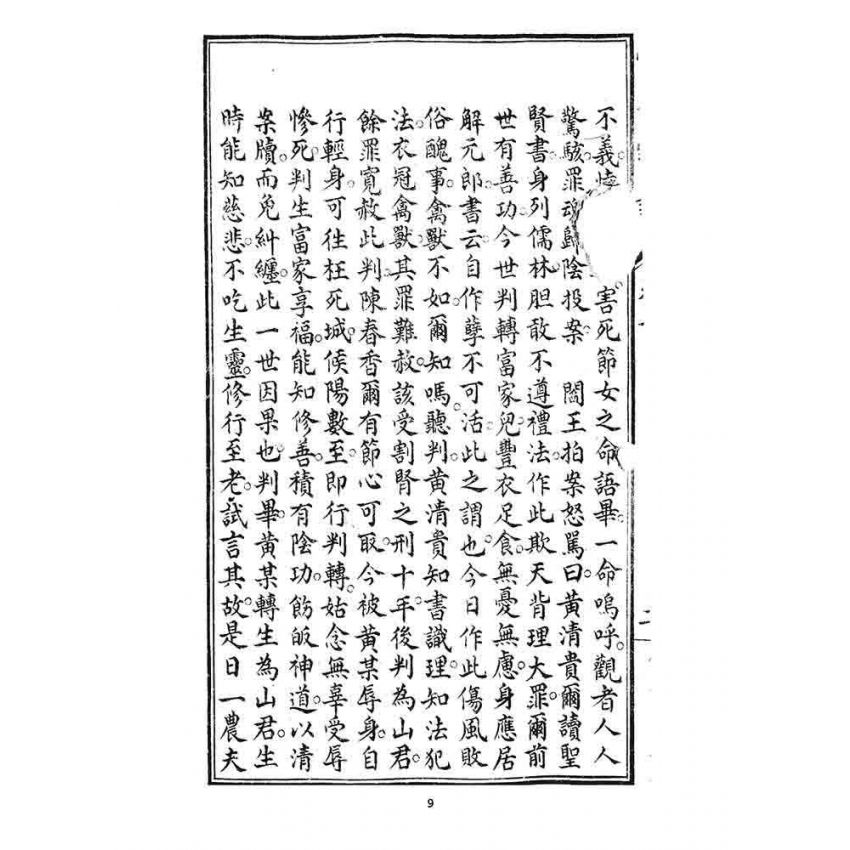 不義悖害死節女之命語畢。一命嗚呼。觀者人人
驚駭。罪魂歸陰投案。閻王拍案怒罵曰。黃清貴爾讀聖
賢書。身列儒林。胆敢不遵禮法。作此欺天背理大罪。爾前
世有善功。今世判轉富家兒。豐衣足食。無憂無慮。身應居
解元郎。書云。自作孽不可活。此之謂也。今日作此傷風敗
俗醜事。禽獸不如。爾知嗎。聽判。黃清貴知書識理。知法犯
法。衣冠禽獸。其罪難赦。該受割腎之刑。十年後判為山君。
餘罪寬赦。此判。陳春香爾有節心可取。今被黃某辱身。自
行輕身。可往枉死城。候陽數至。即行判轉。姑念無辜受辱
慘死。判生富家享福。能知修善。積有陰功。飭皈神道。以清
案牘。而免糾纏。此一世因果也。判畢。黃某轉生為山君。生
時能知慈悲。不吃生靈。修行至老。試言其故。是日一農夫
9